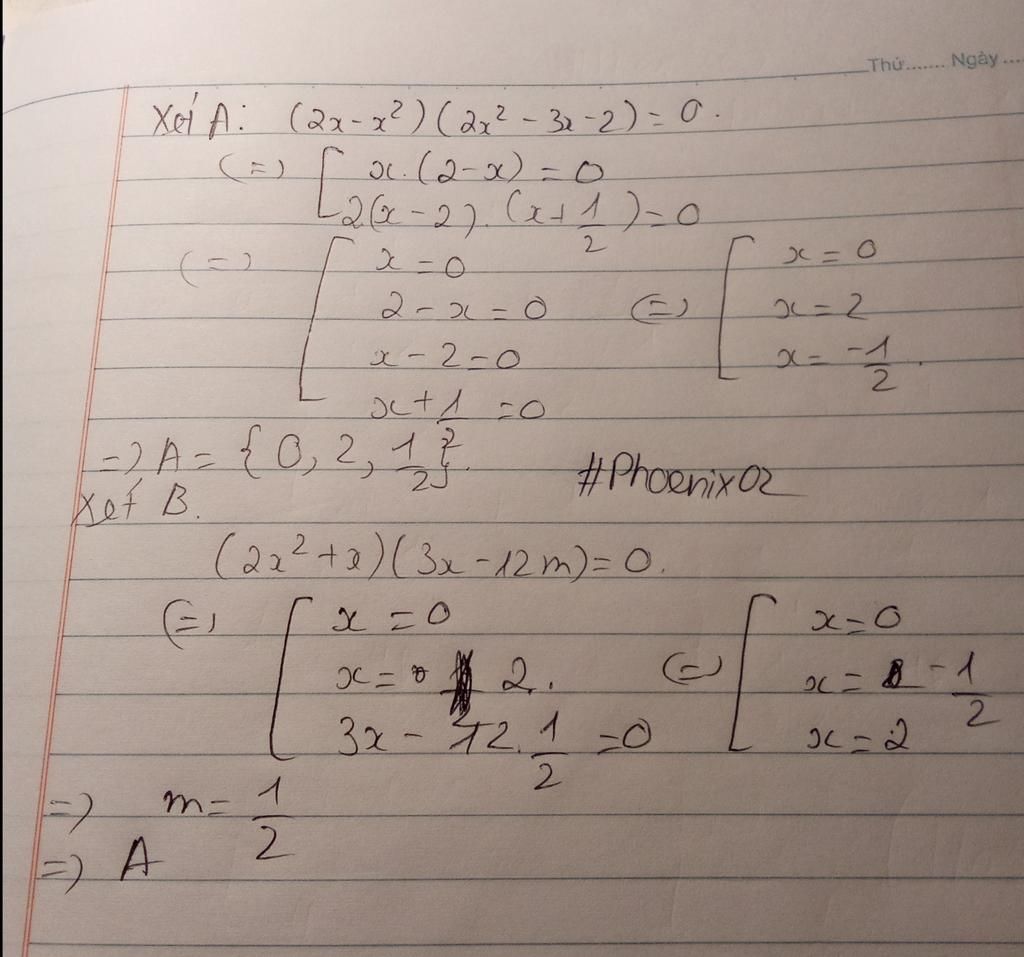 Thứ....... Ngày ....
Xét A: (2x - x²)(2x² - 3x - 2) = 0.
(=) [ x.(2-x) = 0
2(x-2).(x+1/2) = 0
(=) [ x = 0
2 - x = 0
x - 2 = 0
x + 1/2 = 0
(=) [ x = 0
x = 2
x = -1/2.
=) A = {0, 2, 1/2}.
#Phoenix02
Xét B.
(2x² + x)(3x - 12m) = 0.
(=) [ x = 0
x = 2.
3x - 12.1/2 = 0
(=) [ x = 0
x = -1/2
x = 2
=) m = 1/2
=) A